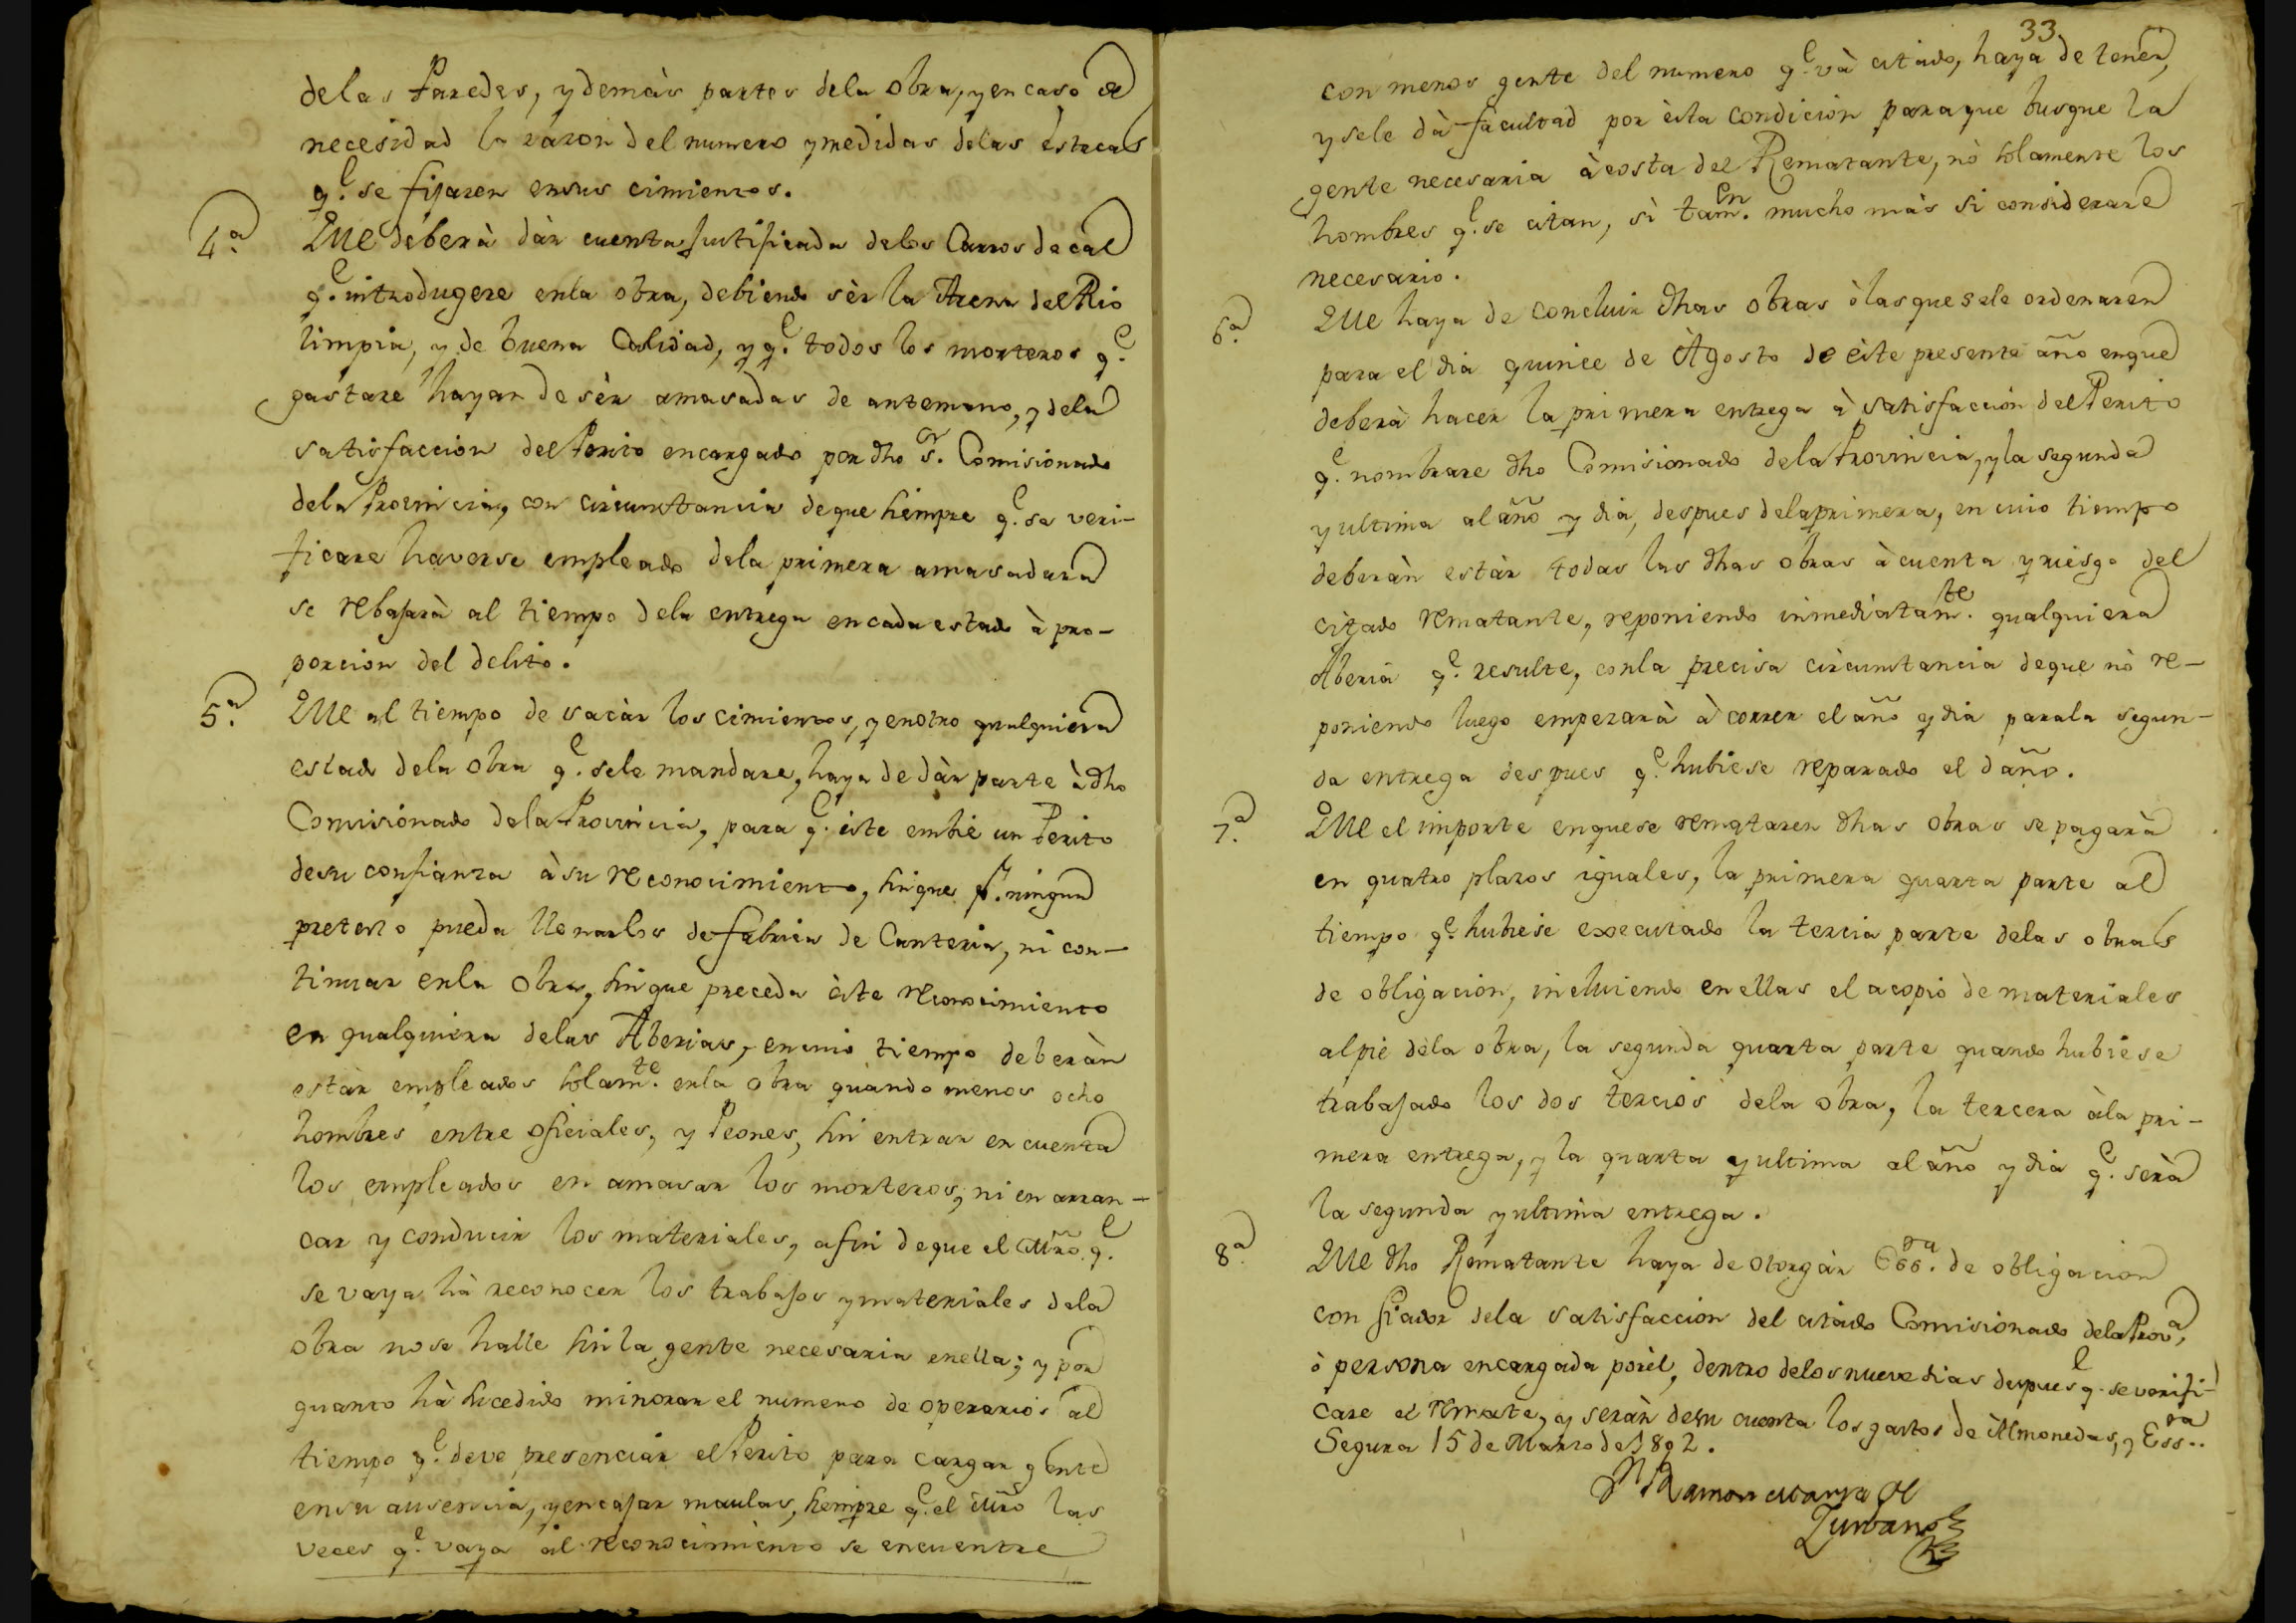 delas Paredes, y demàs partes dela obra, y en caso de
necesidad la razon del numero y medidas delas estacas
q.e se fijaren ensus cimientos.
4.a Que deberà dàr cuenta justificada delos Carros de cal
q.e introdugere enla obra, debiendo sèr la Arena del Rio
limpia, y de buena Calidad, y q.e todos los morteros q.e
gastare hayan de sèr amasadas de antemano, y dela
satisfaccion del Perito encargado por dho s.or Comisionado
dela Provincia, con circunstancia deque siempre q.e se veri-
ficare haverse empleado dela primera amasadura
se rebajarà al tiempo dela entrega en cada estado à pro-
porcion del delito.
5.a Que al tiempo de sacàr los cimientos, y en otro qualquiera
estado dela obra q.e sele mandare, haya de dàr parte à dho
Comisionado dela Provincia, para q.e èste embie un Perito
desu confianza àsu reconocimiento, sin que p.r ningun
pretexto pueda llenarlos de fabrica de Canteria, ni con-
tinuar enla Obra, sin que preceda èste reconocimiento
en qualquiera delas Aberias, en cuio tiempo deberàn
estàr empleados solam.te enla obra quàndo menos ocho
hombres entre oficiales, y Peones, sin entrar en cuenta
los empleados en amasar los morteros, ni en arran-
car y conducir los materiales, afin deque el Mrõ q.e
se vaya hà reconocer los trabajos y materiales dela
obra nose halle sin la gente necesaria enella; y por
quanto hà sucedido minorar el numero de operarios al
tiempo q.e deve presenciàr el Perito para cargar gente
ensu ausencia, y encajar maulas, siempre q.e el Mrõ las
veces q.e vaya al reconocimiento se encuentre
33
con menos gente del numero q.e và citado, haya de tener,
y sele dà facultad por èsta condicion para que busque la
gente necesaria àcosta del Rematante, nò solamente los
hombres q.e se citan, sì tam.en mucho màs si considerare
necesario.
6.a Que haya de concluir dhas obras òlas que sele ordenaren
para el dia quince de Agosto de èste presente año enque
deberà hacer la primera entrega à satisfaccion del Perito
q.e nombrare dho Comisionado dela Provincia, y la segunda
y ultima al año y dia, despues dela primera, en cuio tiempo
deberàn estàr todas las dhas obras à cuenta y riesgo del
citado rematante, reponiendo inmediatam.te qualquiera
Aberia q.e resulte, conla precisa circunstancia deque nò re-
poniendo luego empezarà à correr el año y dia para la segun-
da entrega despues q.e hubiese reparado el daño.
7.a Que el importe enquese remataren dhas obras se pagarà
en quatro plazos iguales, la primera quarta parte al
tiempo q.e hubiese executado la tercia parte delas obras
de obligacion, incluiendo en ellas el acopio de materiales
al pie dela obra, la segunda quarta parte quando hubiese
trabajado los dos tercios dela obra, la tercera àla pri-
mera entrega, y la quarta y ultima al año y dia q.e serà
la segunda y ultima entrega.
8.a Que dho Rematante haya de otorgàr Ess.ra de obligacion
con fiador dela satisfaccion del citado Comisionado dela Prov.a,
ò persona encargada porèl, dentro delos nueve dias despues q.e se verifi-
care el remate, y seràn desu cuenta los gastos de Almonedas, y Ess.ra
Segura 15 de Marzo de 1802.
Ramon Maria de
Zurbano